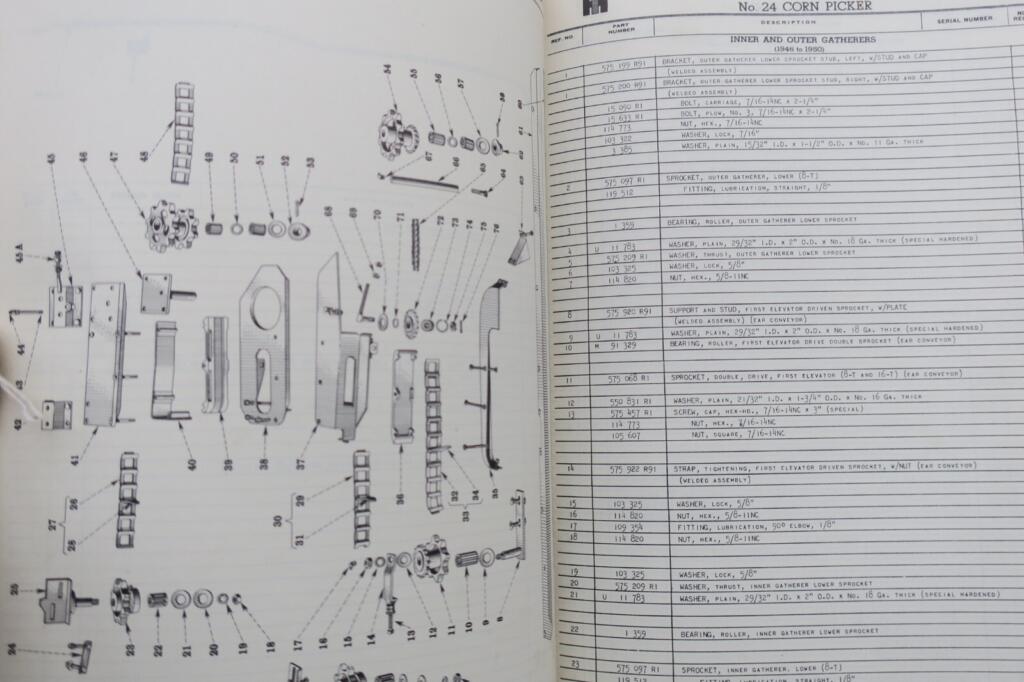 54
55
56
57
58
59
60
61
45
46
47
48
49
50
51
52
53
67
66
65
64
63
45A
68
69
70
71
72
73
74
75
76
44
43
42
41
40
39
38
37
36
32
33
34
35
27
26
28
30
29
31
25
24
23
22
21
20
19
18
17
16
15
14
13
12
11
10
9
8
No. 24 CORN PICKER
REF. NO. PART NUMBER DESCRIPTION SERIAL NUMBER
INNER AND OUTER GATHERERS
(1946 to 1950)
1 575 199 R91 BRACKET, OUTER GATHERER LOWER SPROCKET STUD, LEFT, W/STUD AND CAP
(WELDED ASSEMBLY)
1 575 200 R91 BRACKET, OUTER GATHERER LOWER SPROCKET STUD, RIGHT, W/STUD AND CAP
(WELDED ASSEMBLY)
15 090 R1 BOLT, CARRIAGE, 7/16-14NC x 2-1/4"
15 633 R1 BOLT, PLOW, No. 3, 7/16-14NC x 2-1/4"
114 773 NUT, HEX., 7/16-14NC
103 322 WASHER, LOCK, 7/16"
3 385 WASHER, PLAIN, 15/32" I.D. x 1-1/2" O.D. x No. 11 GA. THICK
2 575 097 R1 SPROCKET, OUTER GATHERER, LOWER (8-T)
119 512 FITTING, LUBRICATION, STRAIGHT, 1/8"
3 1 359 BEARING, ROLLER, OUTER GATHERER LOWER SPROCKET
4 U 11 783 WASHER, PLAIN, 29/32" I.D. x 2" O.D. x No. 18 GA. THICK (SPECIAL HARDENED)
5 575 209 R1 WASHER, THRUST, OUTER GATHERER LOWER SPROCKET
6 103 325 WASHER, LOCK, 5/8"
7 114 820 NUT, HEX., 5/8-11NC
8 575 920 R91 SUPPORT AND STUD, FIRST ELEVATOR DRIVEN SPROCKET, W/PLATE
(WELDED ASSEMBLY) (EAR CONVEYOR)
9 U 11 783 WASHER, PLAIN, 29/32" I.D. x 2" O.D. x No. 18 GA. THICK (SPECIAL HARDENED)
10 M 91 329 BEARING, ROLLER, FIRST ELEVATOR DRIVE DOUBLE SPROCKET (EAR CONVEYOR)
11 575 068 R1 SPROCKET, DOUBLE, DRIVE, FIRST ELEVATOR (8-T AND 16-T) (EAR CONVEYOR)
12 550 831 R1 WASHER, PLAIN, 21/32" I.D. x 1-3/4" O.D. x No. 16 GA. THICK
13 575 457 R1 SCREW, CAP, HEX-HD., 7/16-14NC x 3" (SPECIAL)
114 773 NUT, HEX., 7/16-14NC
105 607 NUT, SQUARE, 7/16-14NC
14 575 922 R91 STRAP, TIGHTENING, FIRST ELEVATOR DRIVEN SPROCKET, W/NUT (EAR CONVEYOR)
(WELDED ASSEMBLY)
15 103 325 WASHER, LOCK, 5/8"
16 114 820 NUT, HEX., 5/8-11NC
17 109 354 FITTING, LUBRICATION, 90° ELBOW, 1/8"
18 114 820 NUT, HEX., 5/8-11NC
19 103 325 WASHER, LOCK, 5/8"
20 575 209 R1 WASHER, THRUST, INNER GATHERER LOWER SPROCKET
21 U 11 783 WASHER, PLAIN, 29/32" I.D. x 2" O.D. x No. 18 GA. THICK (SPECIAL HARDENED)
22 1 359 BEARING, ROLLER, INNER GATHERER LOWER SPROCKET
23 575 097 R1 SPROCKET, INNER GATHERER, LOWER (8-T)
119 512 FITTING, LUBRICATION, STRAIGHT, 1/8"